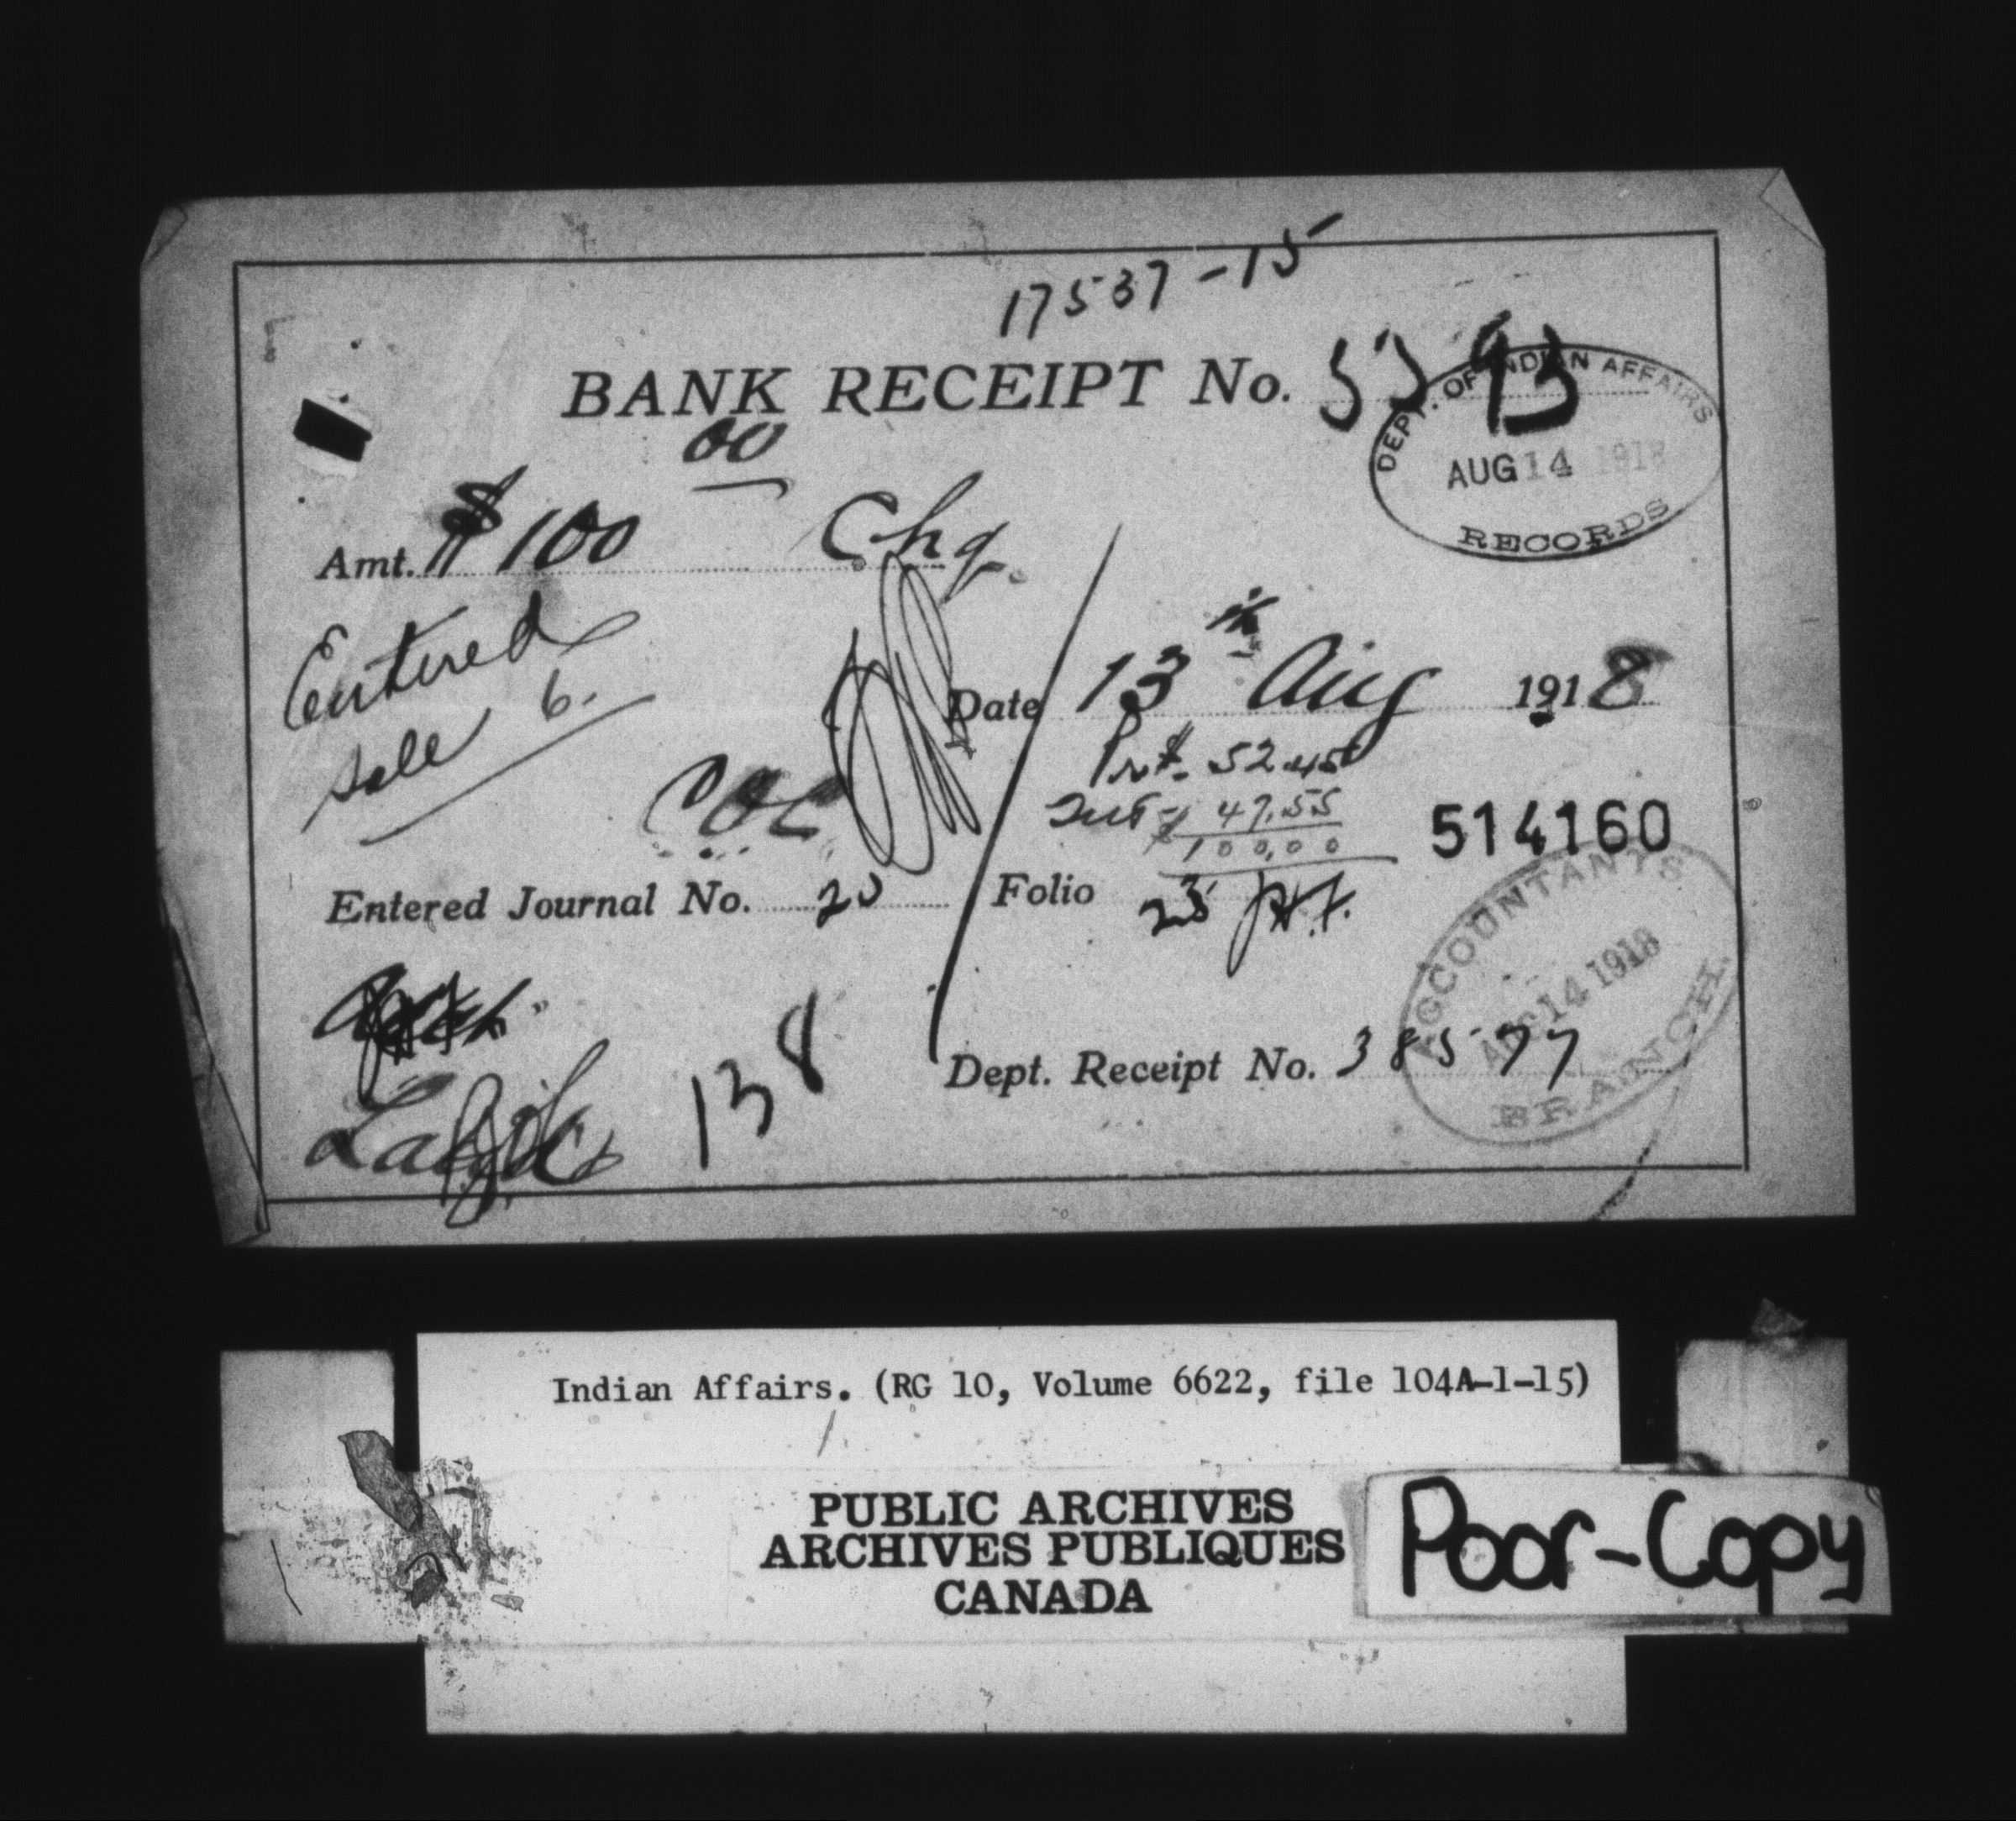 17537-15
BANK RECEIPT No. 5593
DEPT. OF INDIAN AFFAIRS
AUG 14 1918
RECORDS
Amt. $100 00 Chq.
Entered
sale 6.
Date 13th Aug 1918
Prt. 52.45
Int 47.55
100,00
514160
Entered Journal No. 20 Folio 23
ACCOUNTANT'S
AUG 14 1918
BRANCH.
138
Dept. Receipt No. 38577
Indian Affairs. (RG 10, Volume 6622, file 104A-1-15)
PUBLIC ARCHIVES
ARCHIVES PUBLIQUES
CANADA
Poor-Copy